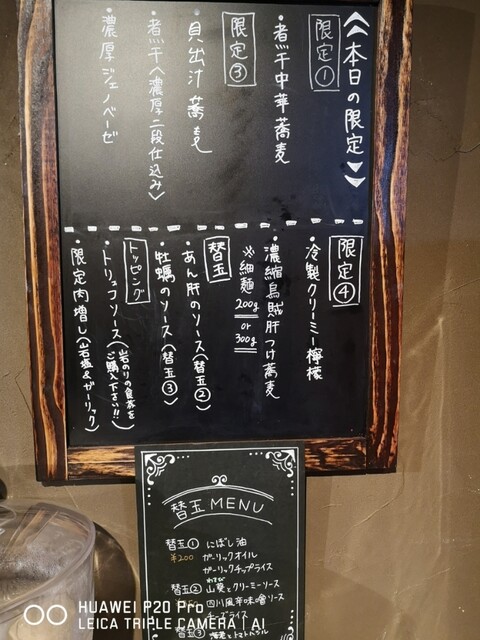 ≪本日の限定≫
限定①
・煮干中華蕎麦
限定③
・貝出汁蕎麦
・煮干〈濃厚二段仕込み〉
・濃厚ジェノベーゼ
限定④
・冷製クリーミー檸檬
・濃縮烏賊肝つけ蕎麦
※細麺200g or 300g
替玉
・あん肝のソース(替玉②)
・牡蠣のソース(替玉③)
トッピング
・トリュフソース(岩のりの食券をご購入下さい!!)
・限定肉増し(山石塩&ガーリック)
替玉MENU
替玉① にぼし油
¥200 ガーリックオイル
ガーリックチップライス
替玉② 山葵とクリーミーソース
わさび
四川風辛味噌ソース
チーズライス
替玉③
HUAWEI P20 Pro
LEICA TRIPLE CAMERA | AI